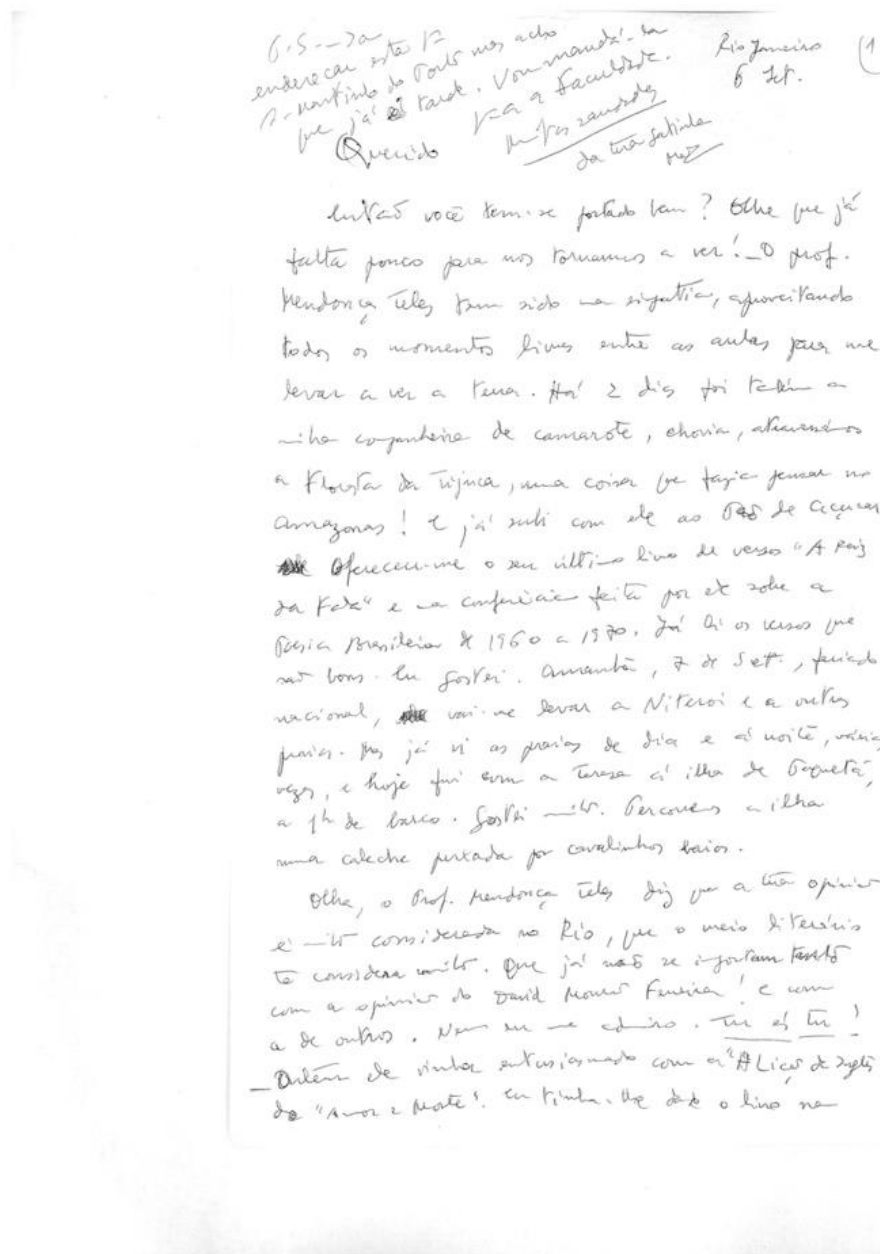 P.S. — Ia
endereçar esta pa
S. Martinho do Porto mas acho
que já é tarde. Vou mandá-la
pa a Faculdade.
Mtas saudades
da tua gatinha
Rio Janeiro
6 Set.
(1
Querido
Então você tem-se portado bem? Olhe que já
falta pouco para nos tornarmos a ver! — O prof.
Mendonça Teles tem sido uma simpatia, aproveitando
todos os momentos livres entre as aulas para me
levar a ver a terra. Há 2 dias foi também a
minha companheira de camarote, chovia, atravessámos
a Floresta da Tijuca, uma coisa que fazia pensar no
Amazonas! E já subi com ele ao Pão de Açucar
Ofereceu-me o seu último livro de versos "A Raiz
da Fala" e uma conferência feita por ele sobre a
Poesia Brasileira de 1960 a 1970. Já li os versos que
são bons. Eu gostei. Amanhã, 7 de Set., feriado
nacional, vai-me levar a Niteroi e a outras
praias. Mas já vi as praias de dia e à noite, várias
vezes, e hoje fui com a Teresa à ilha de Paquetá,
a 1h de barco. Gostei mto. Percorremos a ilha
numa caleche puxada por cavalinhos baios.
Olha, o Prof. Mendonça Teles diz que a tua opinião
é mto considerada no Rio, que o meio literário
te considera muito. Que já não se importam tanto
com a opinião do David Mourão Ferreira! e com
a de outros. Nem eu me admiro. Tu és tu!
— Ontem ele vinha entusiasmado com a "A Lição de Inglês
do "Amor e Morte". Eu tinha-lhe dado o livro na